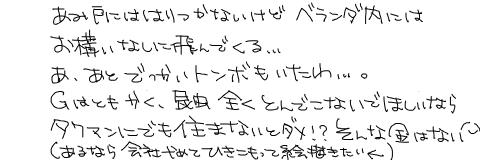 あみ戸にははりつかないけど ベランダ内には
お構いなしに飛んでくる…
あ、あと でっかいトンボもいたわ…。
Gはともかく、昆虫 全くとんでこないでほしいなら
タワマンにでも住まないとダメ!? そんな金はない
(あるなら 会社やめてひきこもって絵描きたいく)